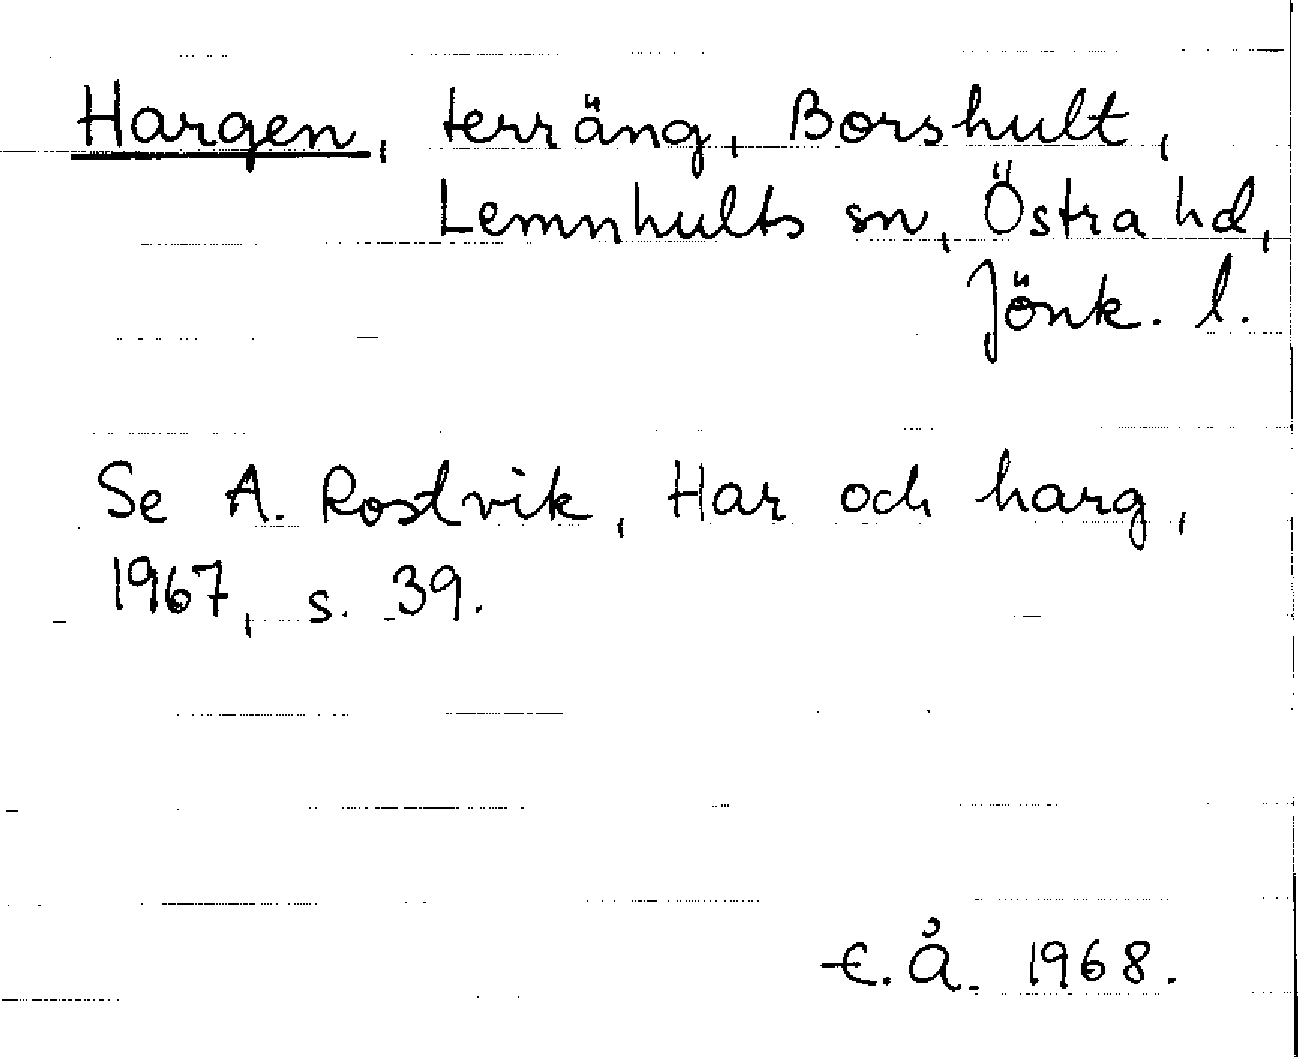 Hargen, terräng, Borshult,
Lemnhults sn, Östra hd,
Jönk. l.
Se A. Rostvik, Har och harg,
1967, s. 39.
E. Å. 1968.